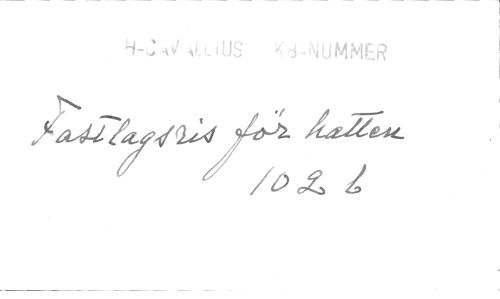 H-CAVALLIUS KB-NUMMER
Fastlagsris för hatten
102 b